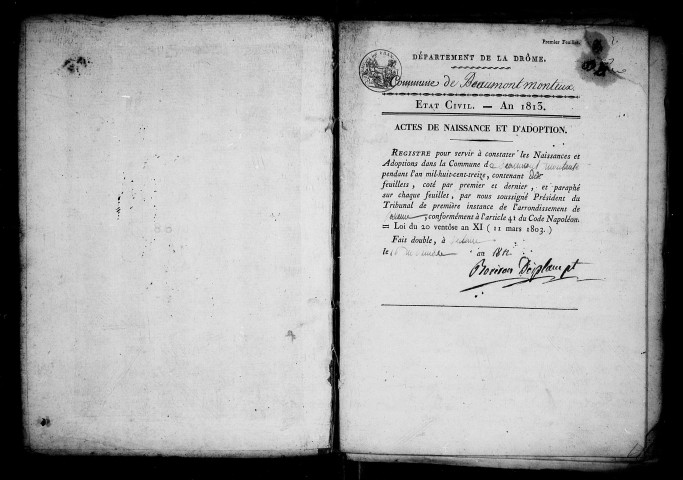 Premier Feuillet.
DÉPARTEMENT DE LA DRÔME.
Commune de Beaumont monteux
ETAT CIVIL. — AN 1813.
ACTES DE NAISSANCE ET D'ADOPTION.
REGISTRE pour servir à constater les Naissances et
Adoptions dans la Commune de Beaumont monteux
pendant l'an mil-huit-cent-treize, contenant dix
feuillets, coté par premier et dernier, et paraphé
sur chaque feuillet, par nous soussigné Président du
Tribunal de première instance de l'arrondissement de
, conformément à l'article 41 du Code Napoléon.
= Loi du 20 ventôse an XI (11 mars 1803.)
Fais double, à
le an 1812